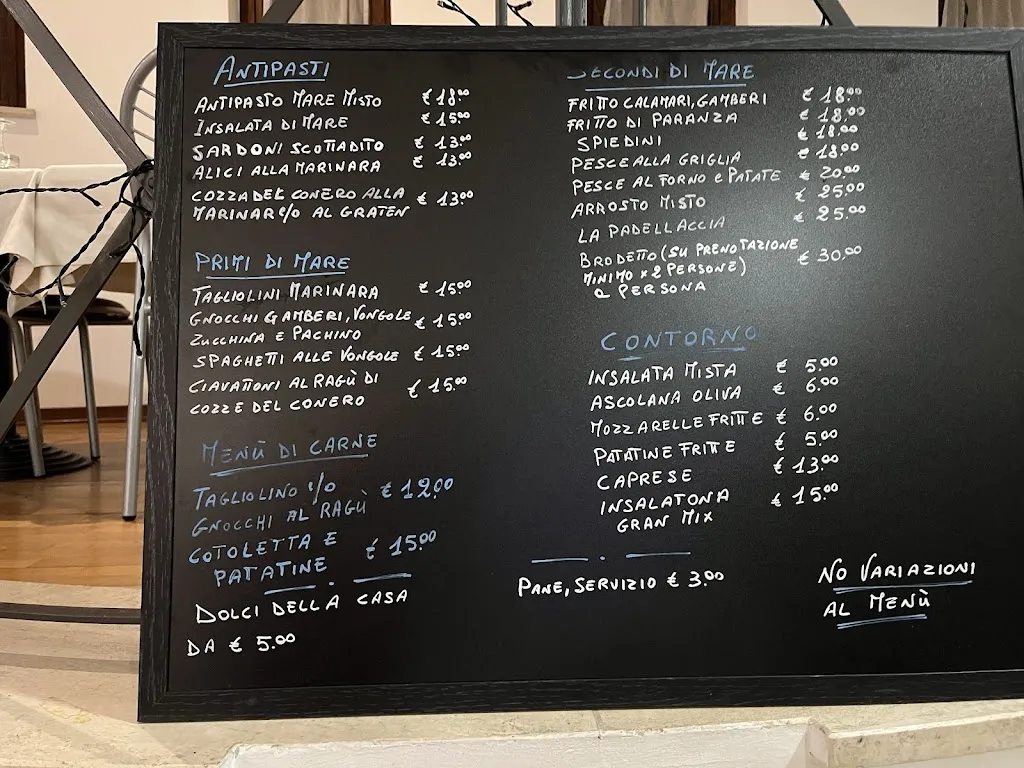 ANTIPASTI
ANTIPASTO MARE MISTO € 18.00
INSALATA DI MARE € 15.00
SARDONI SCOTTADITO € 13.00
ALICI ALLA MARINARA € 13.00
COZZA DEL CONERO ALLA
MARINAR E/O AL GRATEN € 13.00
PRIMI DI MARE
TAGLIOLINI MARINARA € 15.00
GNOCCHI GAMBERI, VONGOLE € 15.00
ZUCCHINA E PACHINO
SPAGHETTI ALLE VONGOLE € 15.00
CIAVATTONI AL RAGÙ DI € 15.00
COZZE DEL CONERO
MENÙ DI CARNE
TAGLIOLINO E/O € 12.00
GNOCCHI AL RAGÙ
COTOLETTA E € 15.00
PATATINE
DOLCI DELLA CASA
DA € 5.00
SECONDI DI MARE
FRITTO CALAMARI, GAMBERI € 18.00
FRITTO DI PARANZA € 18.00
SPIEDINI € 18.00
PESCE ALLA GRIGLIA € 18.00
PESCE AL FORNO e PATATE € 20.00
ARROSTO MISTO € 25.00
LA PADELLACCIA € 25.00
BRODETTO (SU PRENOTAZIONE € 30.00
MINIMO x 2 PERSONE)
a PERSONA
CONTORNO
INSALATA MISTA € 5.00
ASCOLANA OLIVA € 6.00
MOZZARELLE FRITTE € 6.00
PATATINE FRITTE € 5.00
CAPRESE € 13.00
INSALATONA € 15.00
GRAN MIX
PANE, SERVIZIO € 3.00
NO VARIAZIONI
AL MENÙ